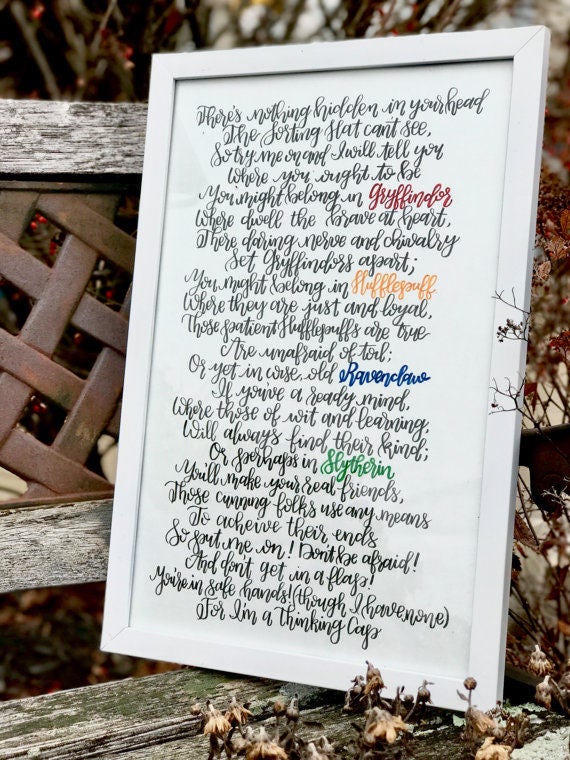 There's nothing hidden in your head
The Sorting Hat can't see,
So try me on and I will tell you
Where you ought to be
You might belong in Gryffindor
Where dwell the brave at heart,
There daring nerve and chivalry
Set Gryffindors apart;
You might belong in Hufflepuff
Where they are just and loyal,
Those patient Hufflepuffs are true
Are unafraid of toil;
Or yet in wise, old Ravenclaw
If you've a ready mind,
Where those of wit and learning,
Will always find their kind;
Or perhaps in Slytherin
You'll make your real friends,
Those cunning folks use any means
To acheive their ends
So put me on! Don't be afraid!
And don't get in a flap!
You're in safe hands! (though I have none)
For I'm a Thinking Cap